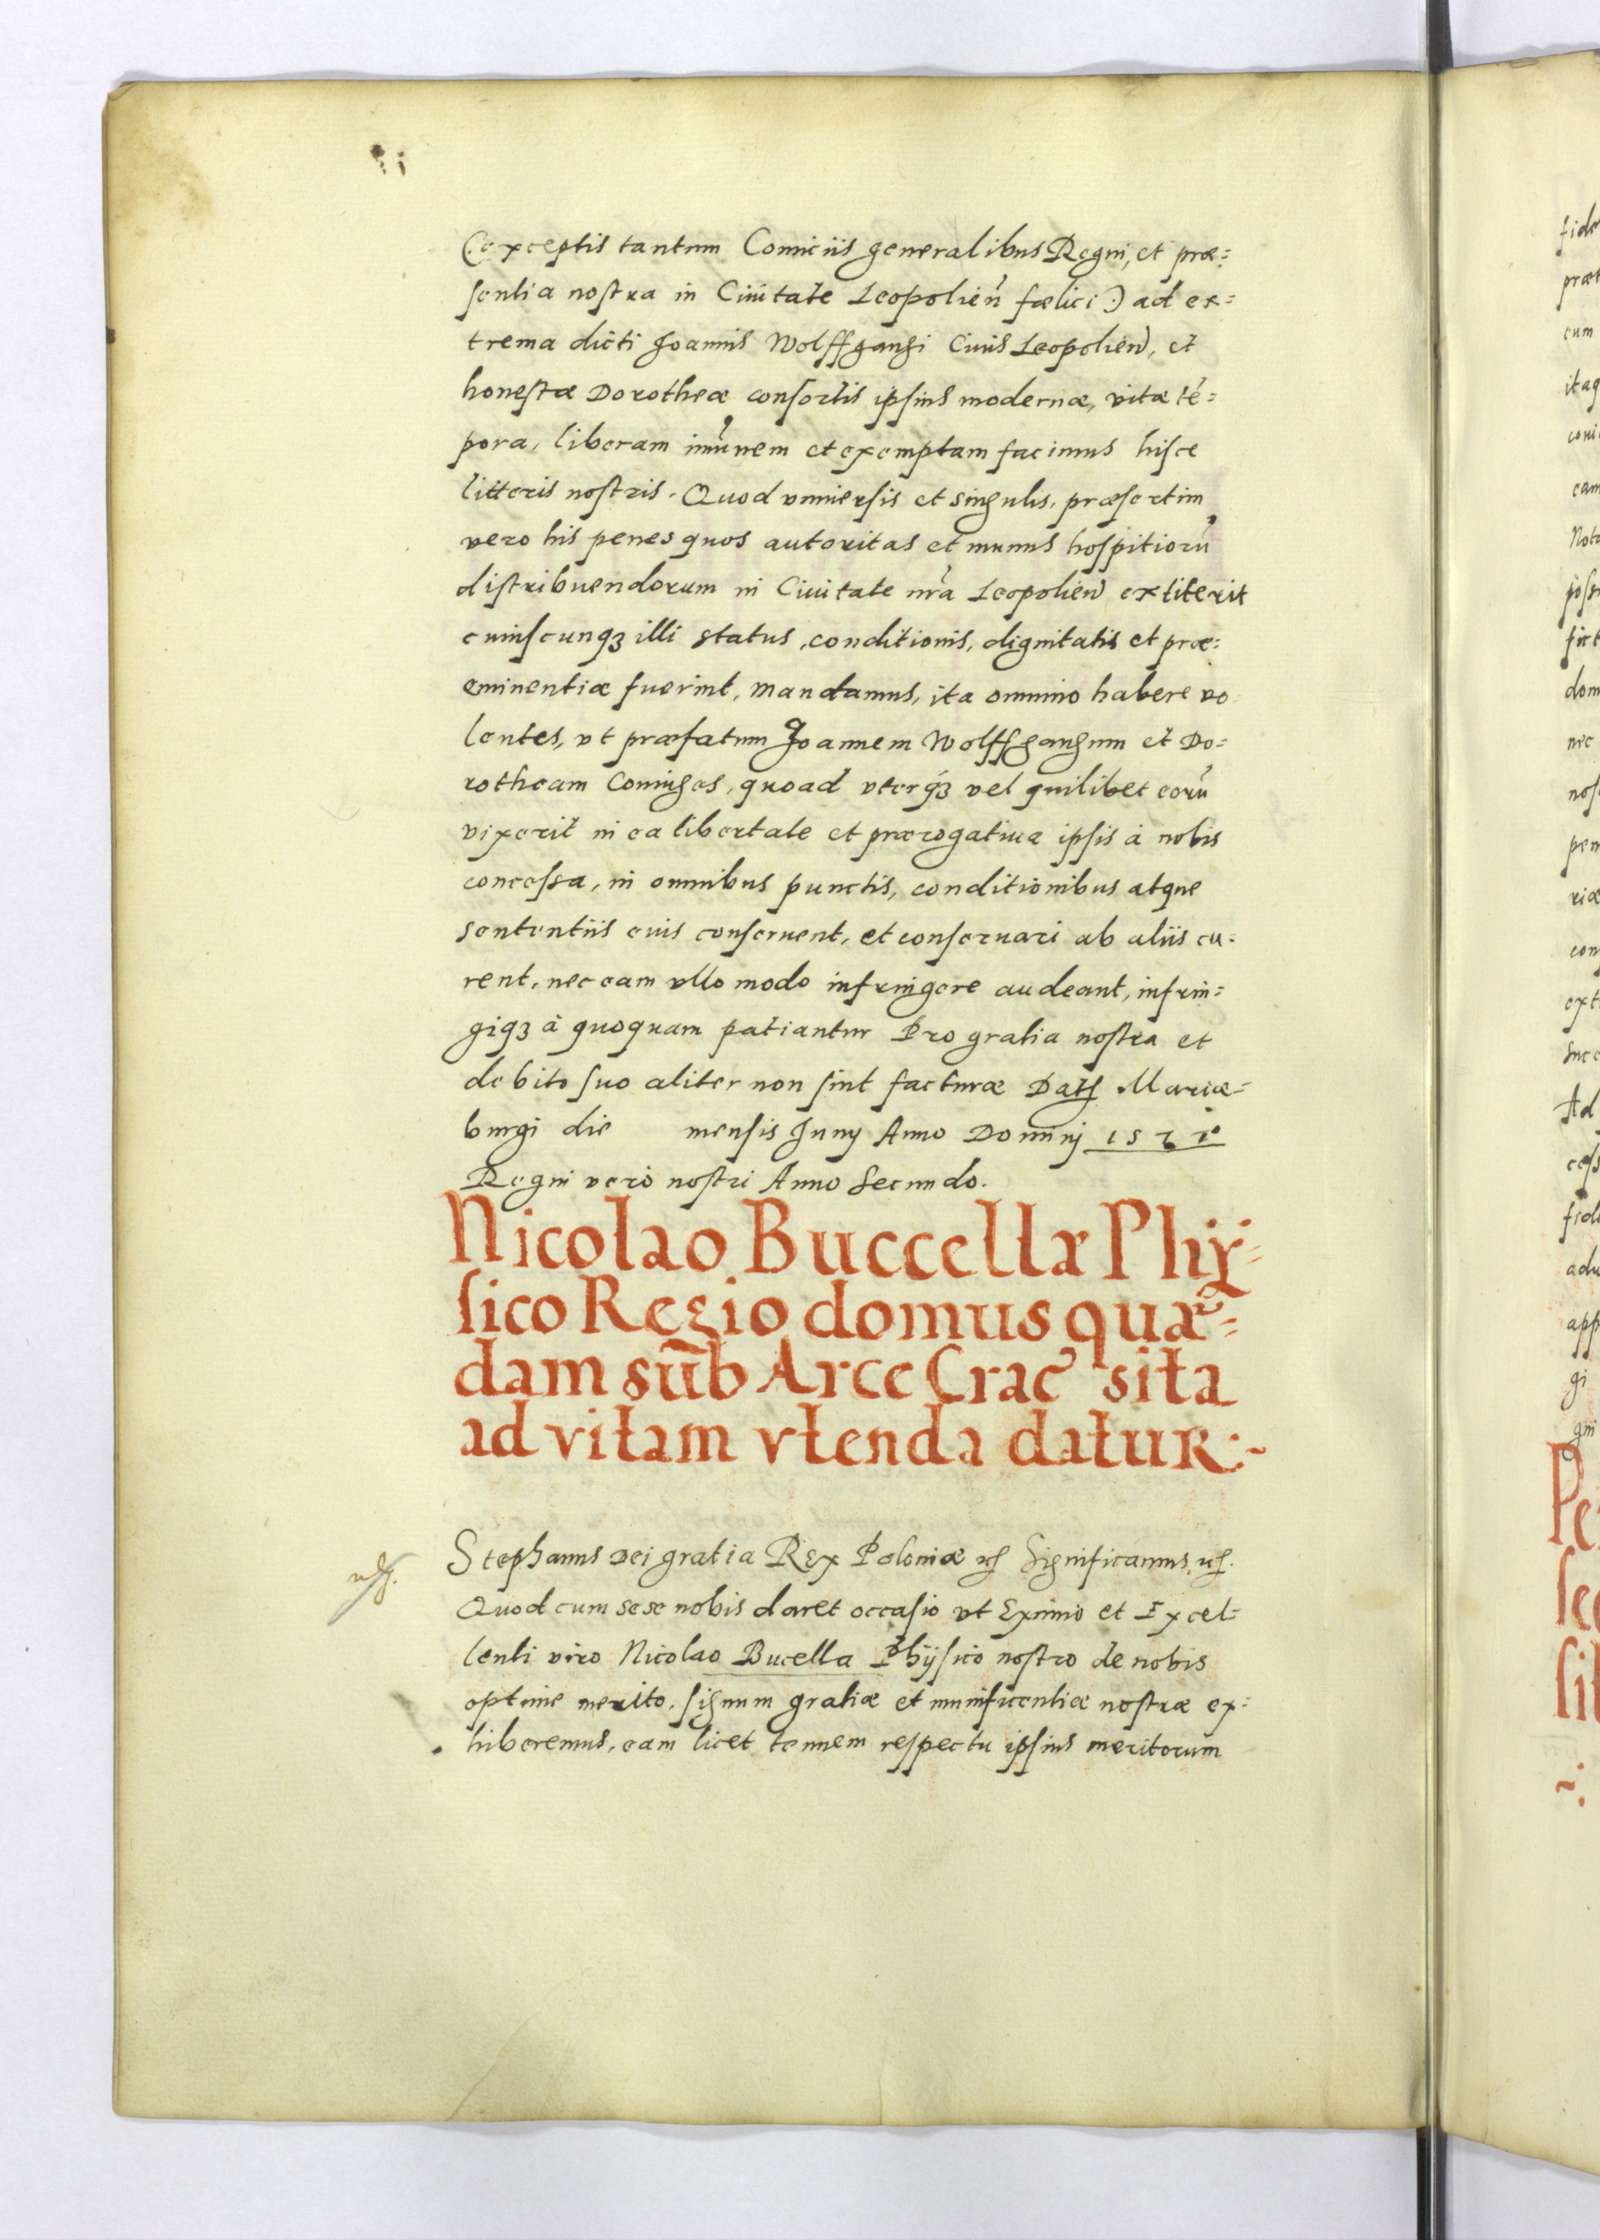 (: exceptis tantum Comiciis generalibus Regni, et præ=
sentia nostra in Ciuitate Leopolien̄ fælici :) ad ex=
trema dicti Joannis Wolffgangi Ciuis Leopolien̄, et
honestæ Dorotheæ consortis ipsius modernæ, vitæ tē=
pora, liberam imūnem et exemptam facimus hisce
litteris nostris. Quod vniuersis et singulis, præsertim
vero his penes quos autoritas et munus hospitiorū
distribuendorum in Ciuitate nr̄a Leopolien̄ extiterit
cuiuscunqꝫ illi status, conditionis, dignitatis et præ=
eminentiæ fuerint, mandamus, ita omnino habere vo
lentes, vt præfatum Joannem Wolffgangum et Do=
rotheam Coniuges, quoad vterqꝫ vel quilibet eorū
vixerit in ea libertate et prærogatiua ipsis à nobis
concessa, in omnibus punctis, conditionibus atque
sententiis euis conseruent, et conseruari ab aliis cu=
rent, nec eam vllo modo infringere audeant, infrin=
giqꝫ à quoquam patiantur Pro gratia nostra et
debito suo aliter non sint facturæ Datꝫ Mariæ=
burgi die mensis Juny Anno Dominj 1577
Regni vero nostri Anno Secundo.
Nicolao Buccellæ Phÿ=
sico Regio domus quæ=
dam sub Arce Crac̄ sita
ad vitam vtenda datur:~
Stephanus Dei gratia Rex Poloniæ ꝛc̄ Significamus ꝛc̄.
Quod cum sese nobis daret occasio vt Eximio et Excel=
lenti viro Nicolao Bucella Phÿsico nostro de nobis
optime merito, signum gratiæ et munificentiæ nostræ ex=
hiberemus, eam licet tenuem respectu ipsius meritorum